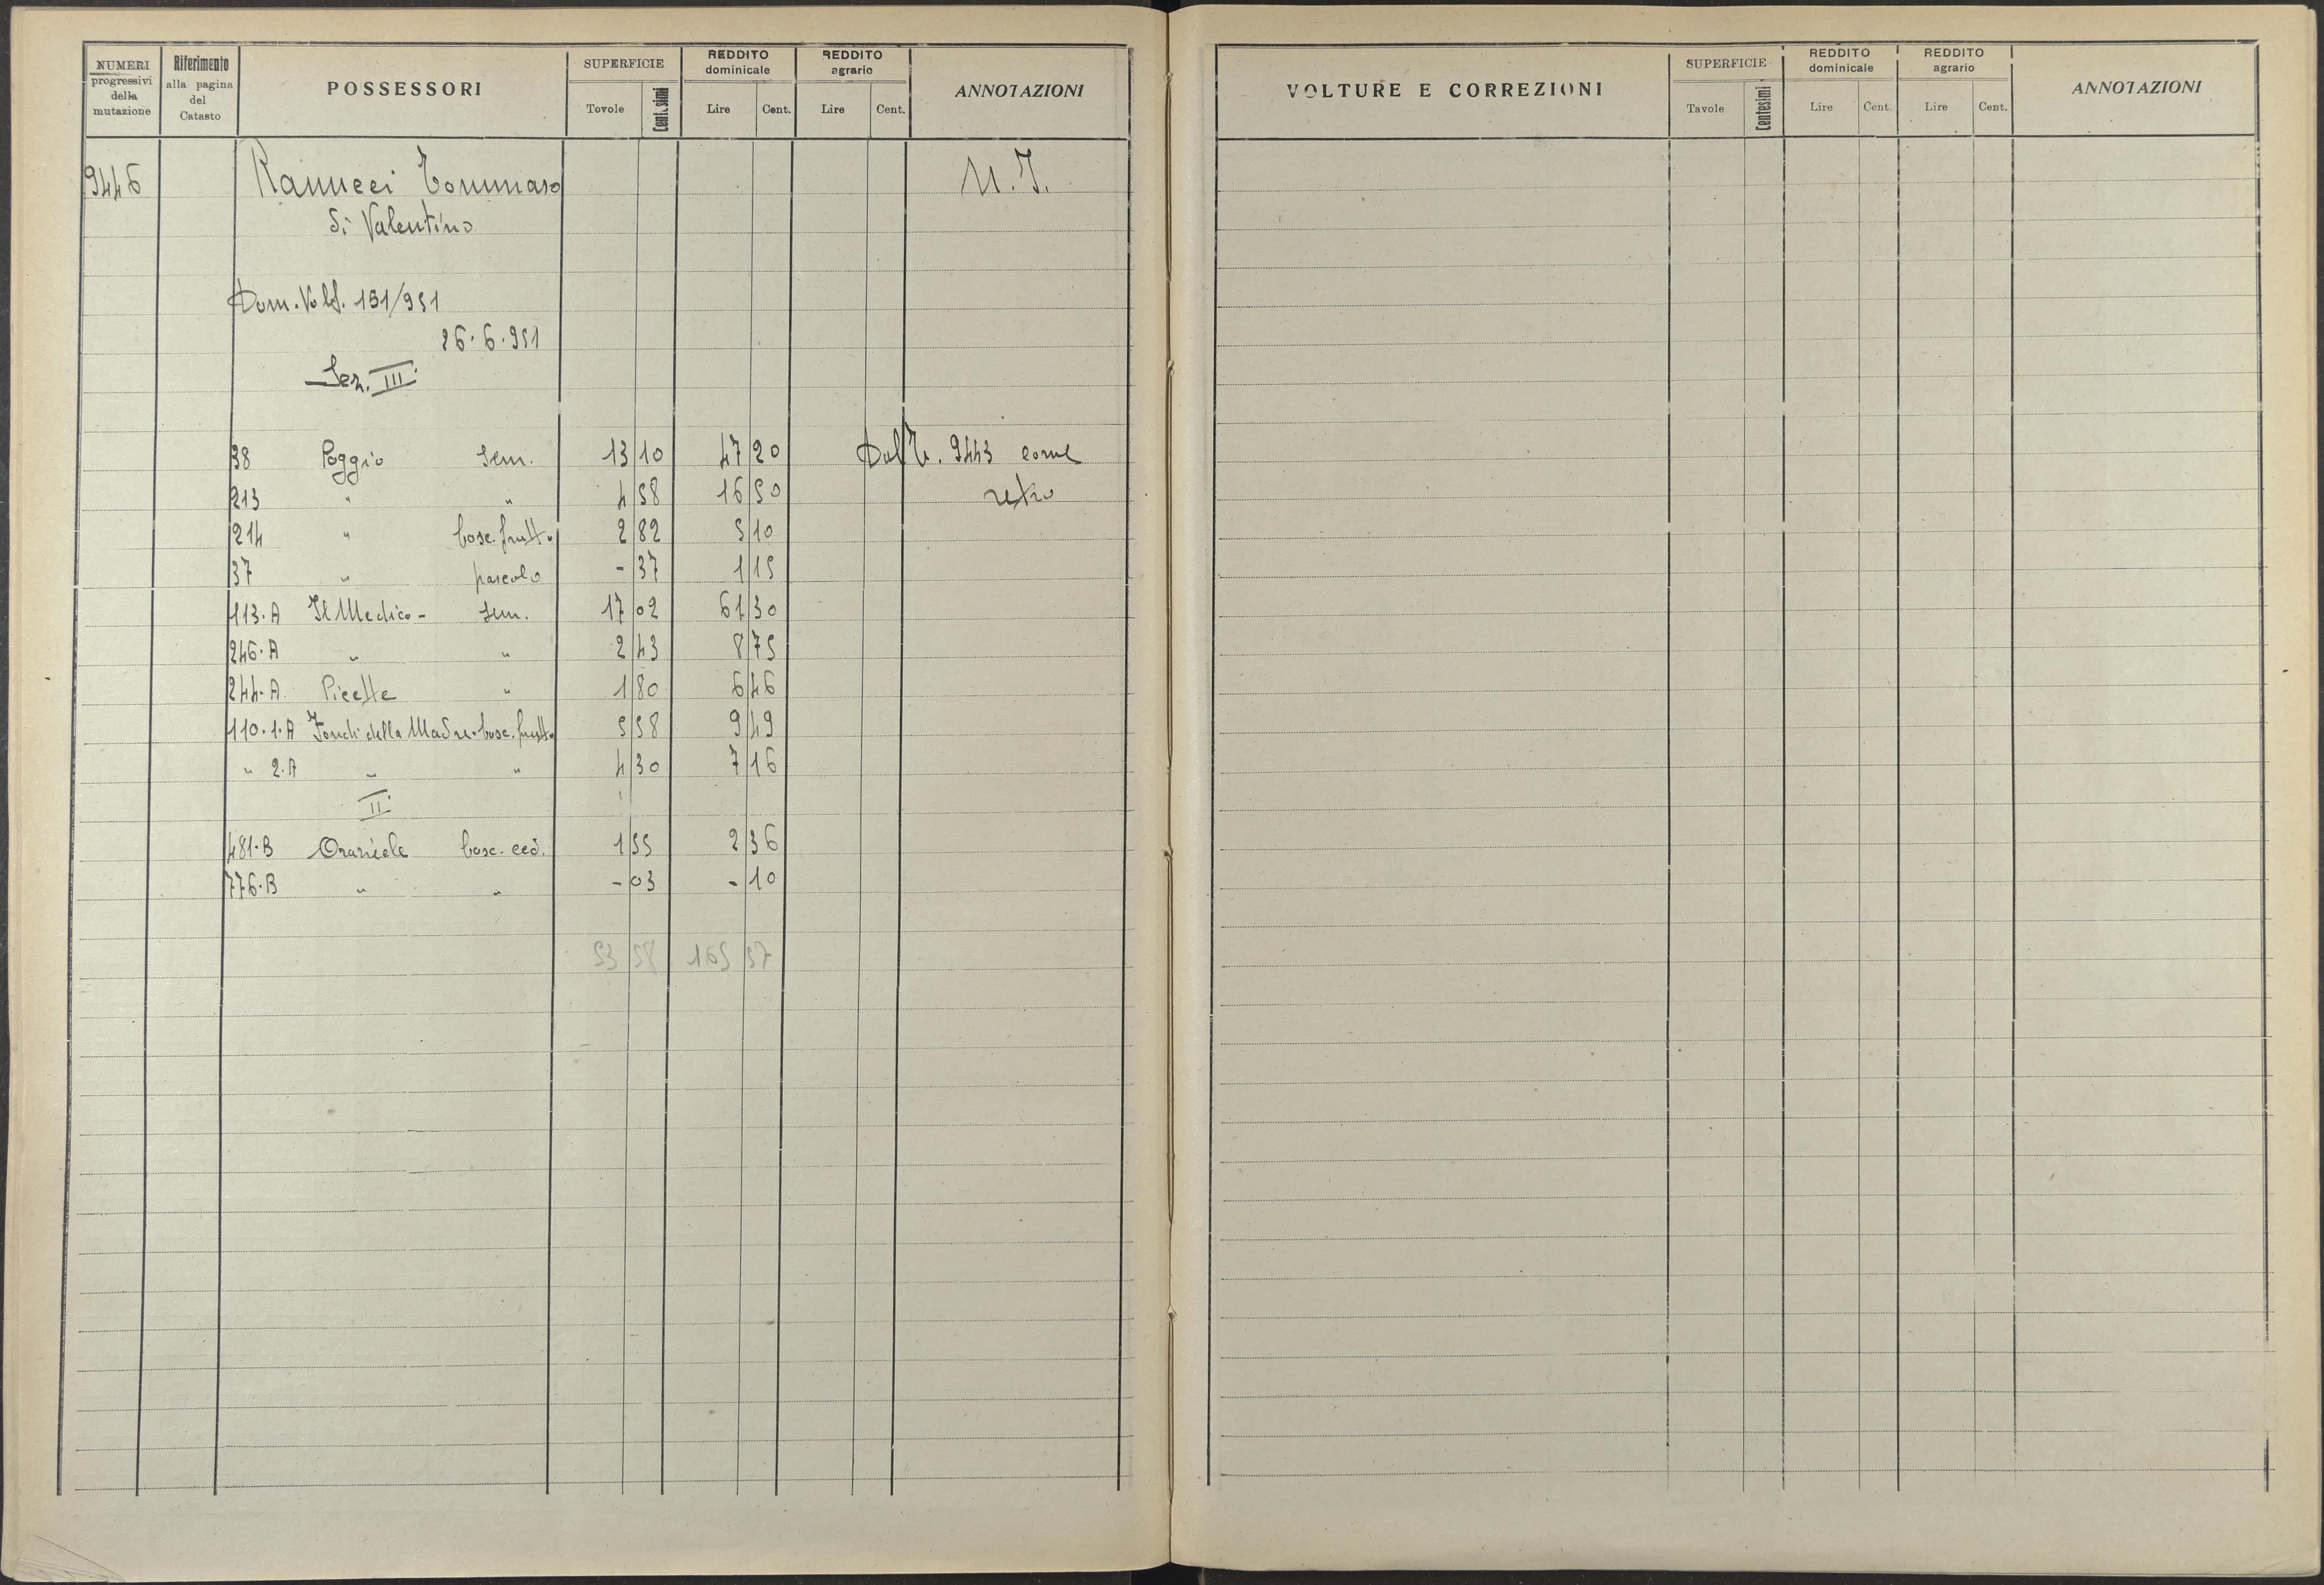 NUMERI progressivi della mutazione | Riferimento alla pagina del Catasto | POSSESSORI | SUPERFICIE Tavole Centesimi | REDDITO dominicale Lire Cent. | REDDITO agrario Lire Cent. | ANNOTAZIONI
9446 Ranucci Tommaso U. I.
di Valentino
Dom. Volt. 151/951
26.6.951
Sez. III
38 Poggio Sem. 13 10 47 20 Dal T. 9443 come
213 " " 4 58 16 50 retro
214 " bosc. frutto 2 82 5 10
37 " pascolo - 37 1 15
113.A Il Medico - Sem. 17 02 61 30
246.A " " 2 43 8 75
244.A Picette " 1 80 6 46
110.1.A Fondi della Madre - bosc. frutto 5 58 9 49
" 2.A " " 4 30 7 16
II
481.B Oraniele bosc. ced. 1 55 2 36
776.B " " - 03 - 10
53 58 165 57
VOLTURE E CORREZIONI | SUPERFICIE Tavole Centesimi | REDDITO dominicale Lire Cent. | REDDITO agrario Lire Cent. | ANNOTAZIONI